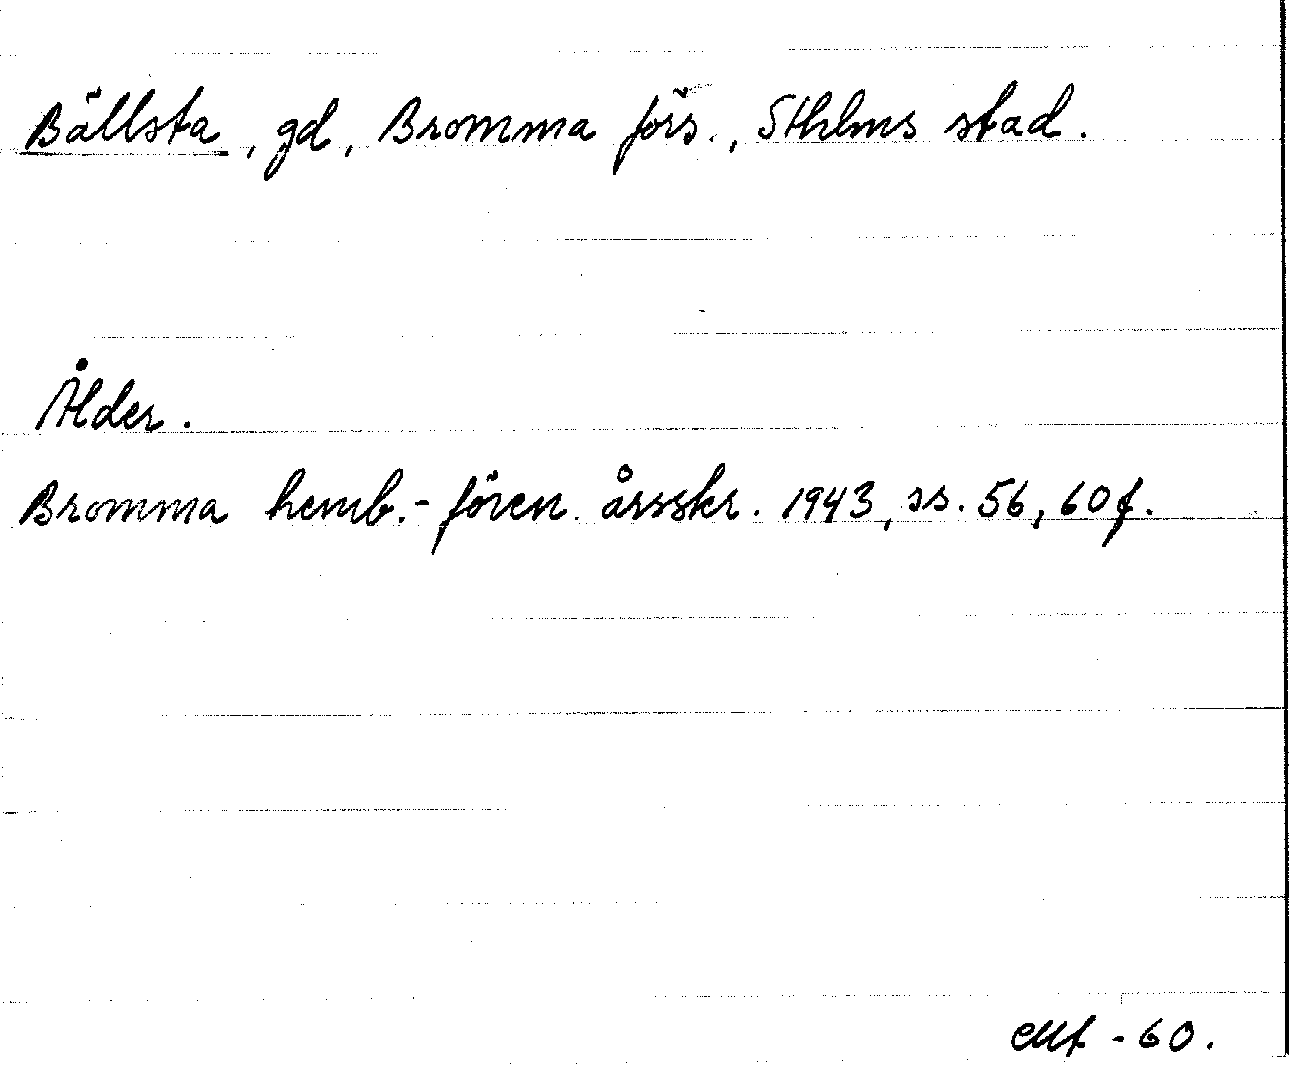 Bällsta, gd, Bromma förs., Sthlms stad.
Ålder.
Bromma hemb.-fören. årsskr. 1943, ss. 56, 60 f.
-60.